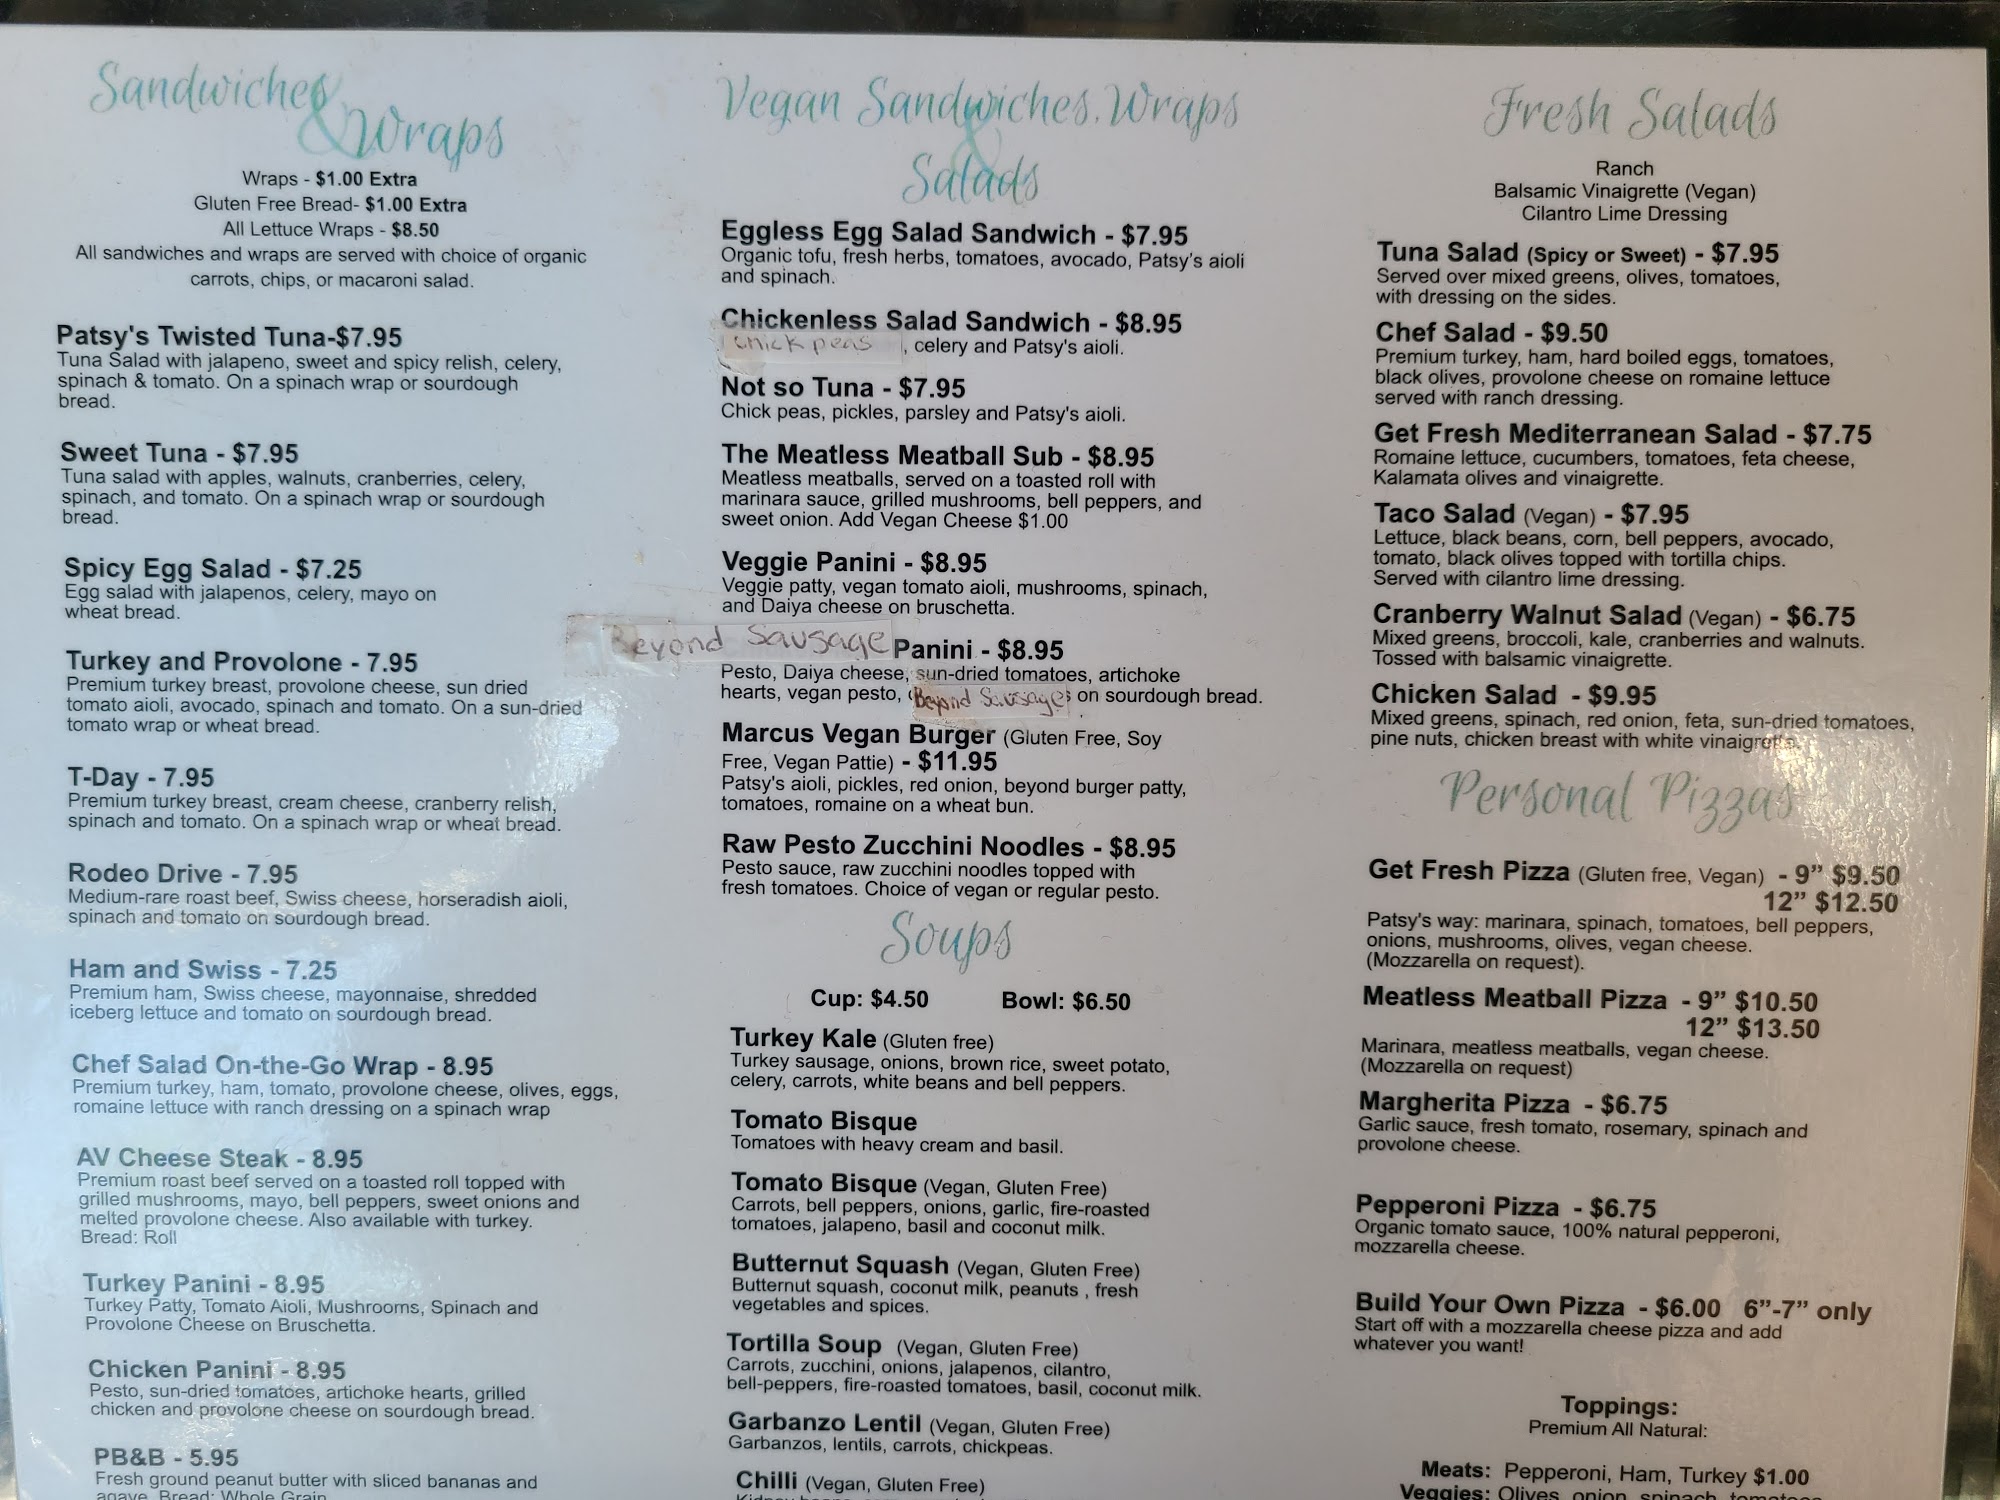 Sandwiches
& Wraps
Wraps - $1.00 Extra
Gluten Free Bread- $1.00 Extra
All Lettuce Wraps - $8.50
All sandwiches and wraps are served with choice of organic
carrots, chips, or macaroni salad.
Patsy's Twisted Tuna-$7.95
Tuna Salad with jalapeno, sweet and spicy relish, celery,
spinach & tomato. On a spinach wrap or sourdough
bread.
Sweet Tuna - $7.95
Tuna salad with apples, walnuts, cranberries, celery,
spinach, and tomato. On a spinach wrap or sourdough
bread.
Spicy Egg Salad - $7.25
Egg salad with jalapenos, celery, mayo on
wheat bread.
Turkey and Provolone - 7.95
Premium turkey breast, provolone cheese, sun dried
tomato aioli, avocado, spinach and tomato. On a sun-dried
tomato wrap or wheat bread.
T-Day - 7.95
Premium turkey breast, cream cheese, cranberry relish,
spinach and tomato. On a spinach wrap or wheat bread.
Rodeo Drive - 7.95
Medium-rare roast beef, Swiss cheese, horseradish aioli,
spinach and tomato on sourdough bread.
Ham and Swiss - 7.25
Premium ham, Swiss cheese, mayonnaise, shredded
iceberg lettuce and tomato on sourdough bread.
Chef Salad On-the-Go Wrap - 8.95
Premium turkey, ham, tomato, provolone cheese, olives, eggs,
romaine lettuce with ranch dressing on a spinach wrap
AV Cheese Steak - 8.95
Premium roast beef served on a toasted roll topped with
grilled mushrooms, mayo, bell peppers, sweet onions and
melted provolone cheese. Also available with turkey.
Bread: Roll
Turkey Panini - 8.95
Turkey Patty, Tomato Aioli, Mushrooms, Spinach and
Provolone Cheese on Bruschetta.
Chicken Panini - 8.95
Pesto, sun-dried tomatoes, artichoke hearts, grilled
chicken and provolone cheese on sourdough bread.
PB&B - 5.95
Fresh ground peanut butter with sliced bananas and
agave. Bread: Whole Grain
Vegan Sandwiches, Wraps
&
Salads
Eggless Egg Salad Sandwich - $7.95
Organic tofu, fresh herbs, tomatoes, avocado, Patsy's aioli
and spinach.
Chickenless Salad Sandwich - $8.95
Chick peas , celery and Patsy's aioli.
Not so Tuna - $7.95
Chick peas, pickles, parsley and Patsy's aioli.
The Meatless Meatball Sub - $8.95
Meatless meatballs, served on a toasted roll with
marinara sauce, grilled mushrooms, bell peppers, and
sweet onion. Add Vegan Cheese $1.00
Veggie Panini - $8.95
Veggie patty, vegan tomato aioli, mushrooms, spinach,
and Daiya cheese on bruschetta.
Beyond Sausage Panini - $8.95
Pesto, Daiya cheese, sun-dried tomatoes, artichoke
hearts, vegan pesto, Beyond Sausage on sourdough bread.
Marcus Vegan Burger (Gluten Free, Soy
Free, Vegan Pattie) - $11.95
Patsy's aioli, pickles, red onion, beyond burger patty,
tomatoes, romaine on a wheat bun.
Raw Pesto Zucchini Noodles - $8.95
Pesto sauce, raw zucchini noodles topped with
fresh tomatoes. Choice of vegan or regular pesto.
Soups
Cup: $4.50 Bowl: $6.50
Turkey Kale (Gluten free)
Turkey sausage, onions, brown rice, sweet potato,
celery, carrots, white beans and bell peppers.
Tomato Bisque
Tomatoes with heavy cream and basil.
Tomato Bisque (Vegan, Gluten Free)
Carrots, bell peppers, onions, garlic, fire-roasted
tomatoes, jalapeno, basil and coconut milk.
Butternut Squash (Vegan, Gluten Free)
Butternut squash, coconut milk, peanuts , fresh
vegetables and spices.
Tortilla Soup (Vegan, Gluten Free)
Carrots, zucchini, onions, jalapenos, cilantro,
bell-peppers, fire-roasted tomatoes, basil, coconut milk.
Garbanzo Lentil (Vegan, Gluten Free)
Garbanzos, lentils, carrots, chickpeas.
Chilli (Vegan, Gluten Free)
Fresh Salads
Ranch
Balsamic Vinaigrette (Vegan)
Cilantro Lime Dressing
Tuna Salad (Spicy or Sweet) - $7.95
Served over mixed greens, olives, tomatoes,
with dressing on the sides.
Chef Salad - $9.50
Premium turkey, ham, hard boiled eggs, tomatoes,
black olives, provolone cheese on romaine lettuce
served with ranch dressing.
Get Fresh Mediterranean Salad - $7.75
Romaine lettuce, cucumbers, tomatoes, feta cheese,
Kalamata olives and vinaigrette.
Taco Salad (Vegan) - $7.95
Lettuce, black beans, corn, bell peppers, avocado,
tomato, black olives topped with tortilla chips.
Served with cilantro lime dressing.
Cranberry Walnut Salad (Vegan) - $6.75
Mixed greens, broccoli, kale, cranberries and walnuts.
Tossed with balsamic vinaigrette.
Chicken Salad - $9.95
Mixed greens, spinach, red onion, feta, sun-dried tomatoes,
pine nuts, chicken breast with white vinaigrette.
Personal Pizzas
Get Fresh Pizza (Gluten free, Vegan) - 9” $9.50
12” $12.50
Patsy's way: marinara, spinach, tomatoes, bell peppers,
onions, mushrooms, olives, vegan cheese.
(Mozzarella on request).
Meatless Meatball Pizza - 9” $10.50
12” $13.50
Marinara, meatless meatballs, vegan cheese.
(Mozzarella on request)
Margherita Pizza - $6.75
Garlic sauce, fresh tomato, rosemary, spinach and
provolone cheese.
Pepperoni Pizza - $6.75
Organic tomato sauce, 100% natural pepperoni,
mozzarella cheese.
Build Your Own Pizza - $6.00 6”-7” only
Start off with a mozzarella cheese pizza and add
whatever you want!
Toppings:
Premium All Natural:
Meats: Pepperoni, Ham, Turkey $1.00
Veggies: Olives, onion, spinach, tomatoes